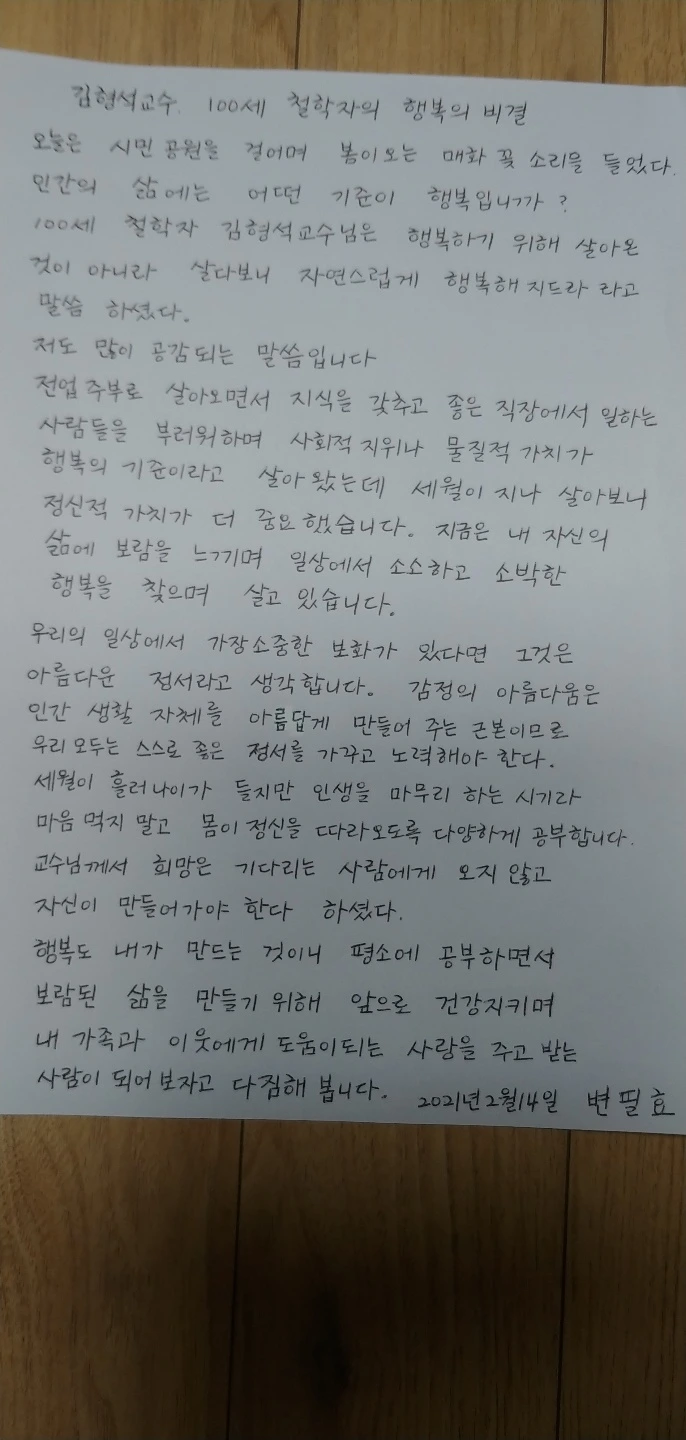 김형석교수. 100세 철학자의 행복의 비결
오늘은 시민공원을 걸어며 봄이오는 매화 꽃 소리를 들었다.
인간의 삶에는 어떤 기준이 행복입니가?
100세 철학자 김형석교수님은 행복하기 위해 살아온
것이 아니라 살다보니 자연스럽게 행복해지드라 라고
말씀 하셨다.
저도 많이 공감되는 말씀입니다
전업주부로 살아오면서 지식을 갖추고 좋은 직장에서 일하는
사람들을 부러워하며 사회적 지위나 물질적 가치가
행복의 기준이라고 살아 왔는데 세월이 지나 살아보니
정신적 가치가 더 중요했습니다. 지금은 내 자신의
삶에 보람을 느끼며 일상에서 소소하고 소박한
행복을 찾으며 살고 있습니다.
우리의 일상에서 가장소중한 보화가 있다면 그것은
아름다운 정서라고 생각합니다. 감정의 아름다움은
인간 생활 자체를 아름답게 만들어 주는 근본이므로
우리 모두는 스스로 좋은 정서를 가꾸고 노력해야 한다.
세월이 흘러나이가 들지만 인생을 마무리 하는 시기라
마음 먹지 말고 몸이 정신을 따라오도록 다양하게 공부합니다.
교수님께서 희망은 기다리는 사람에게 오지 않고
자신이 만들어가야 한다 하셨다.
행복도 내가 만드는 것이니 평소에 공부하면서
보람된 삶을 만들기 위해 앞으로 건강지키며
내 가족과 이웃에게 도움이되는 사랑을 주고 받는
사람이 되어보자고 다짐해 봅니다. 2021년2월14일 변필효